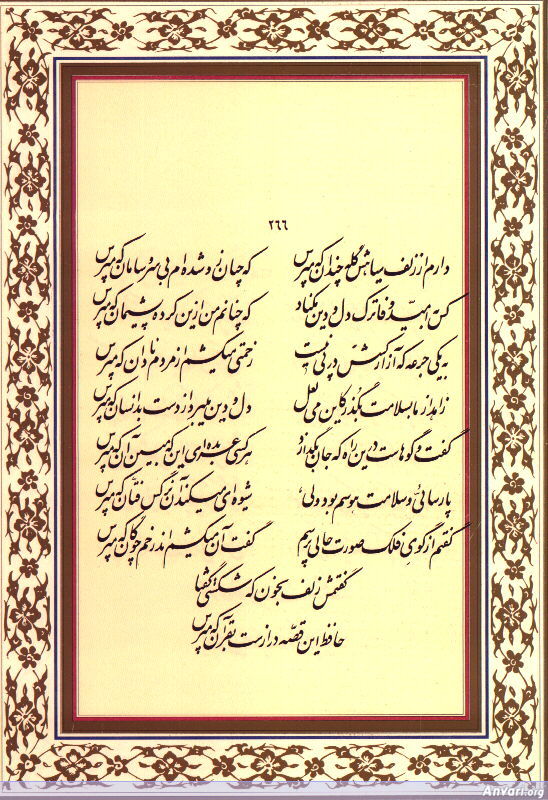 ۲۶۶
دارم از زلف سیاهش گله چندان که مپرس که چنان زو شده‌ام بی سر و سامان که مپرس
کس به امید وفا ترک دل و دین مکناد که چنانم من ازین کرده پشیمان که مپرس
به یکی جرعه که آزار کسش در پی نیست زحمتی میکشم از مردم نادان که مپرس
زاهد از ما بسلامت بگذر کاین می لعل دل و دین میبرد از دست بدانسان که مپرس
گفت و گوهاست درین راه که جان بگدازد هر کسی عربده‌ای این که مبین آن که مپرس
پارسائی و سلامت هوسم بود ولی شیوه‌ای میکند آن نرگس فتّان که مپرس
گفتم از گوی فلک صورت حالی پرسم گفت آن میکشم اندر خم چوگان که مپرس
گفتمش زلف بخون که شکستی گفتا
حافظ این قصّه درازست بقرآن که مپرس
Anvari.org